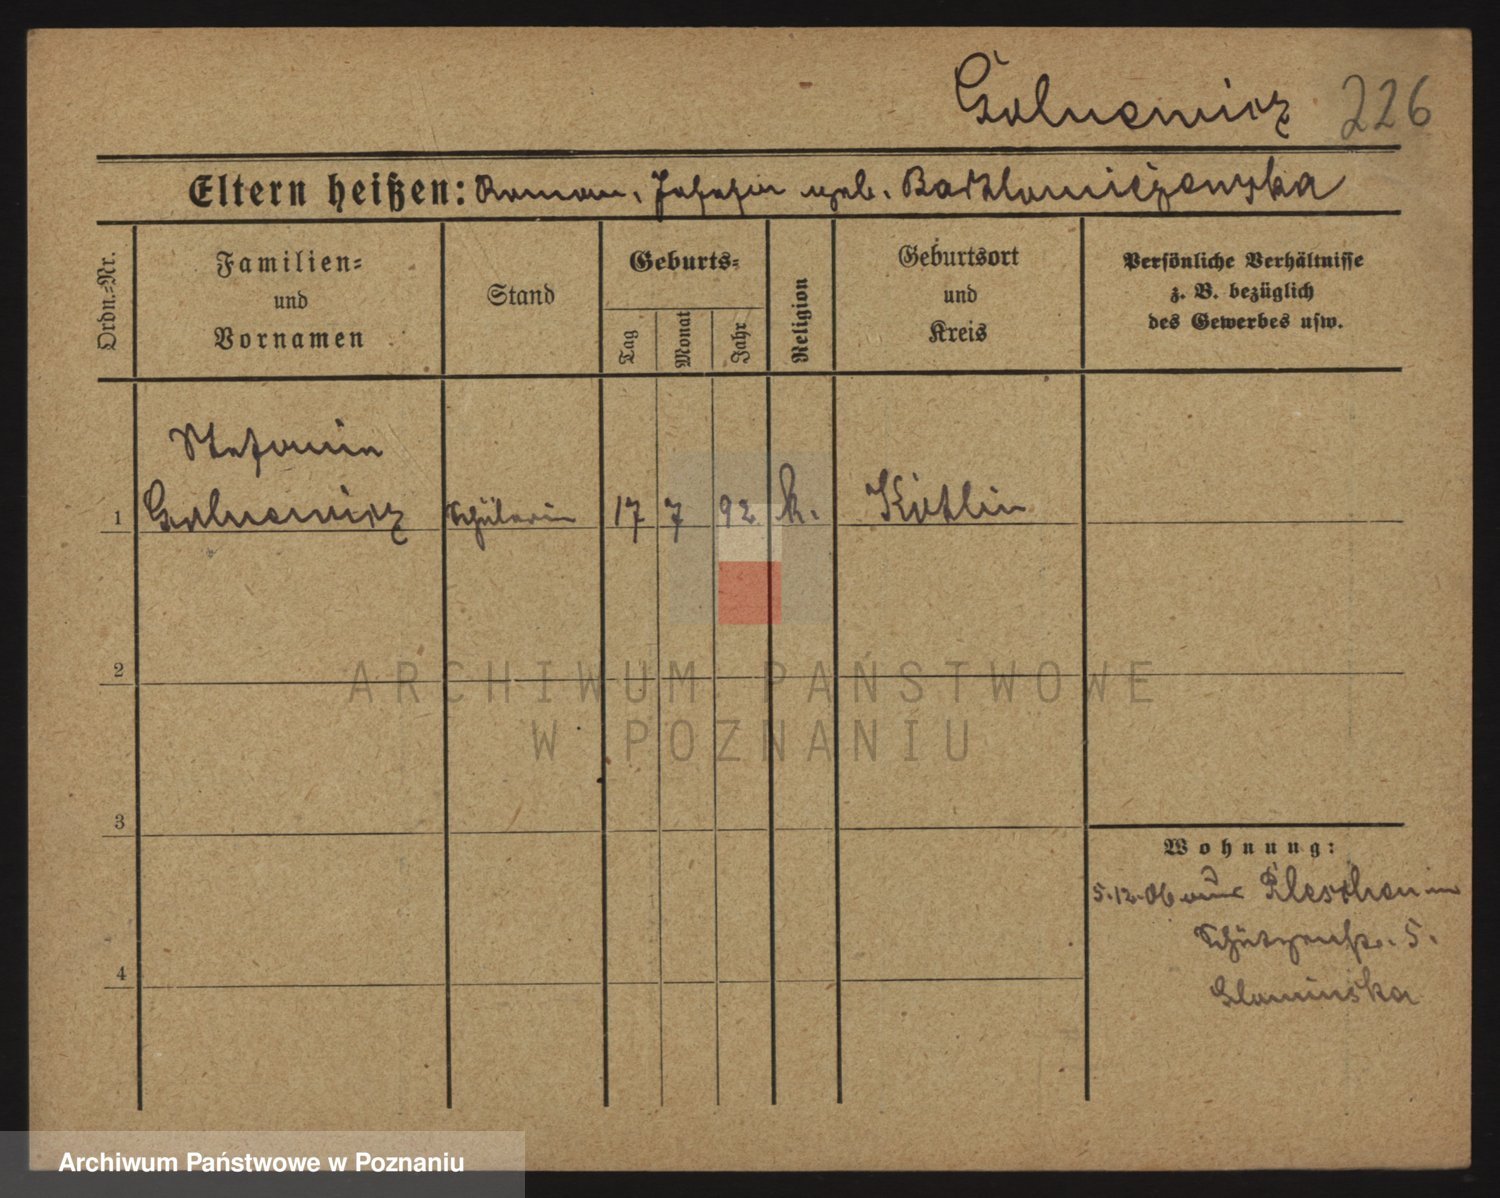 Golnewicz 226
Eltern heißen: Roman, Josefin geb. Bartlomiejewska
Ordn.-Nr.
Familien-
und
Vornamen
Stand
Geburts-
Tag
Monat
Jahr
Religion
Geburtsort
und
Kreis
Persönliche Verhältnisse
z. B. bezüglich
des Gewerbes usw.
Stefanie
1 Golnewicz Schülerin 17 7 92 k. Kotlin
2
ARCHIWUM PAŃSTWOWE
W POZNANIU
3
Wohnung:
5.12.06 aus Pleschen in
Schützenstr. 5.
4
Glaminska
Archiwum Państwowe w Poznaniu